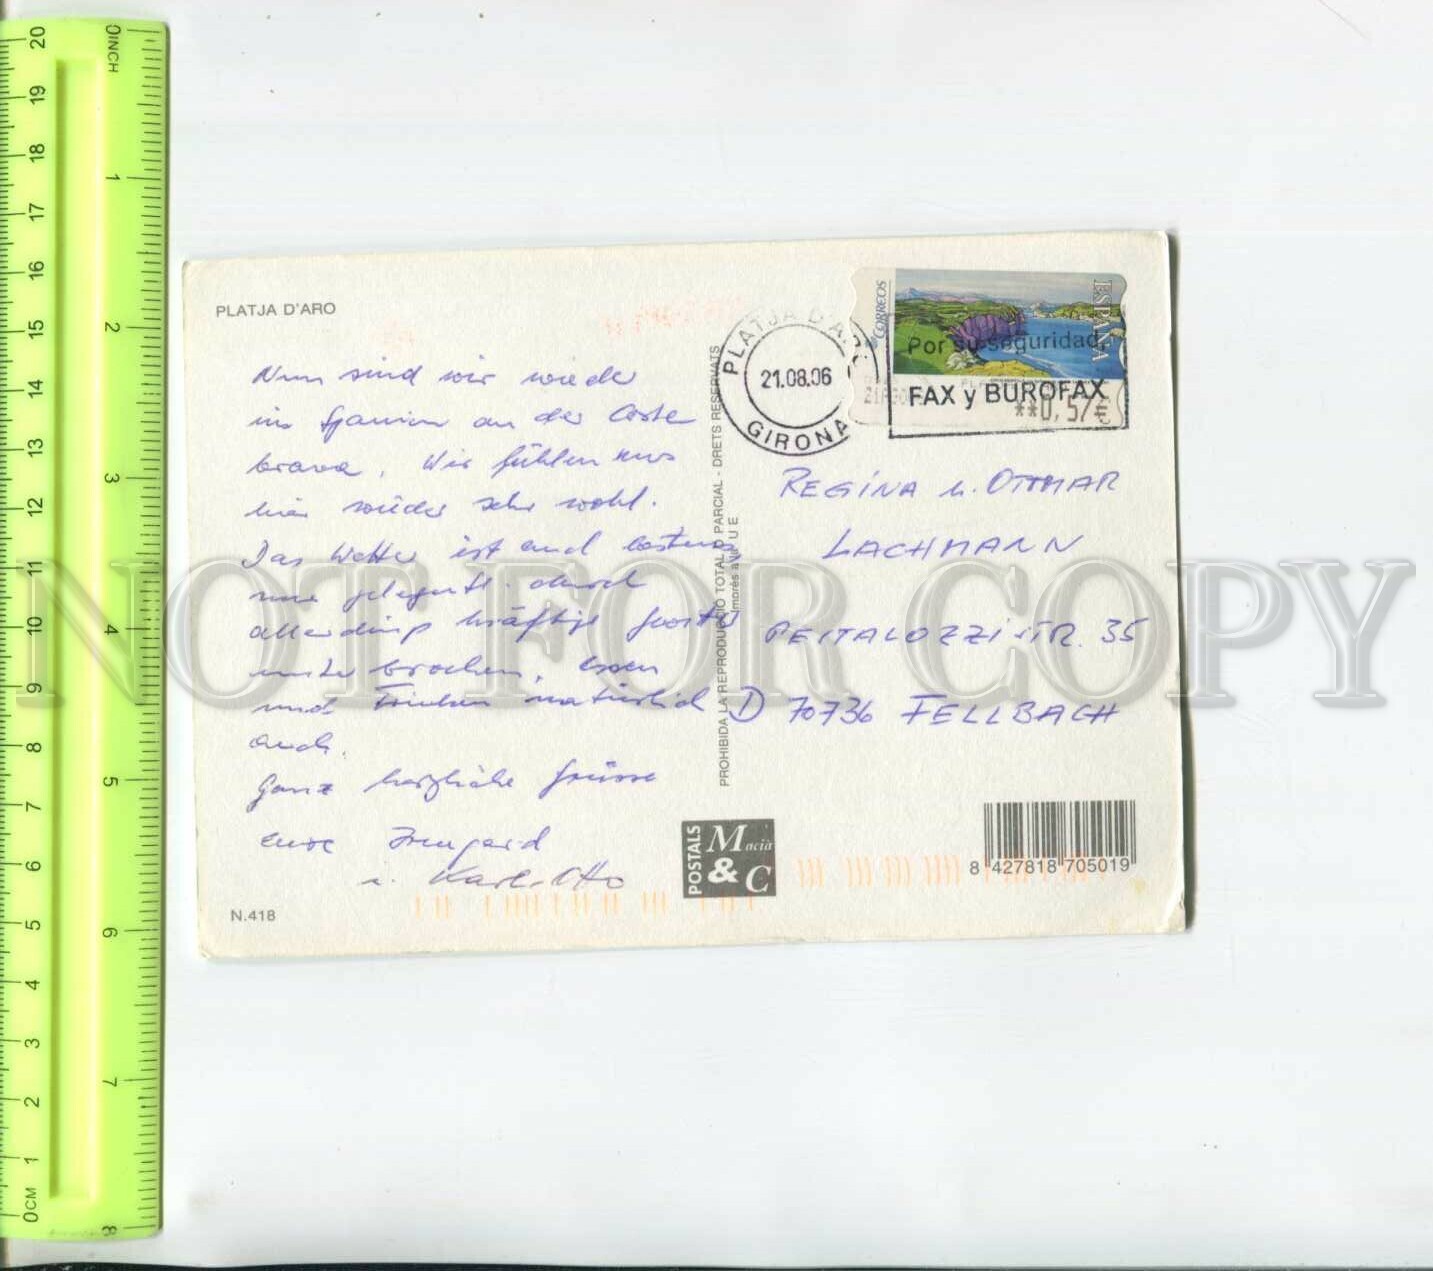 PLATJA D'ARO
Nun sind wir wieder
in Spanien an der Costa
brava. Wir fühlen uns
hier wieder sehr wohl.
Das Wetter ist auch
nur gelegentl. durch
allerdings kräftige
unterbrochen, Essen
und Trinken natürlich
auch.
Ganz herzliche Grüsse
eure Irmgard
u. Karl-Otto
N.418
PROHIBIDA LA REPRODUCCIÓ TOTAL O PARCIAL - DRETS RESERVATS
Imprés a U E
PLATJA D'ARO
21.08.06
GIRONA
CORREOS
ESPAÑA
Por su seguridad,
FAX y BUROFAX
**0,57€
REGINA u. OTTMAR
LACHMANN
PESTALOZZISTR. 35
D 70736 FELLBACH
POSTALS
Macià
& C
8 427818 705019
NOT FOR COPY
0INCH
1
2
3
4
5
6
7
8
20
19
18
17
16
15
14
13
12
11
10
9
8
7
6
5
4
3
2
1
0CM